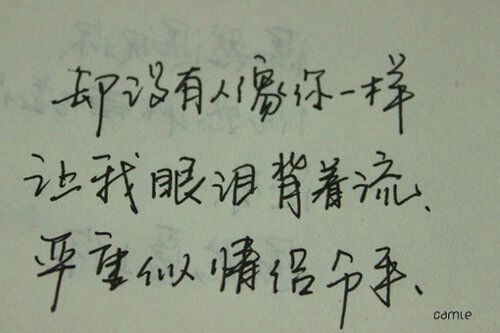 却没有人像你一样
让我眼泪背着流、
严重似情侣分手、
camie